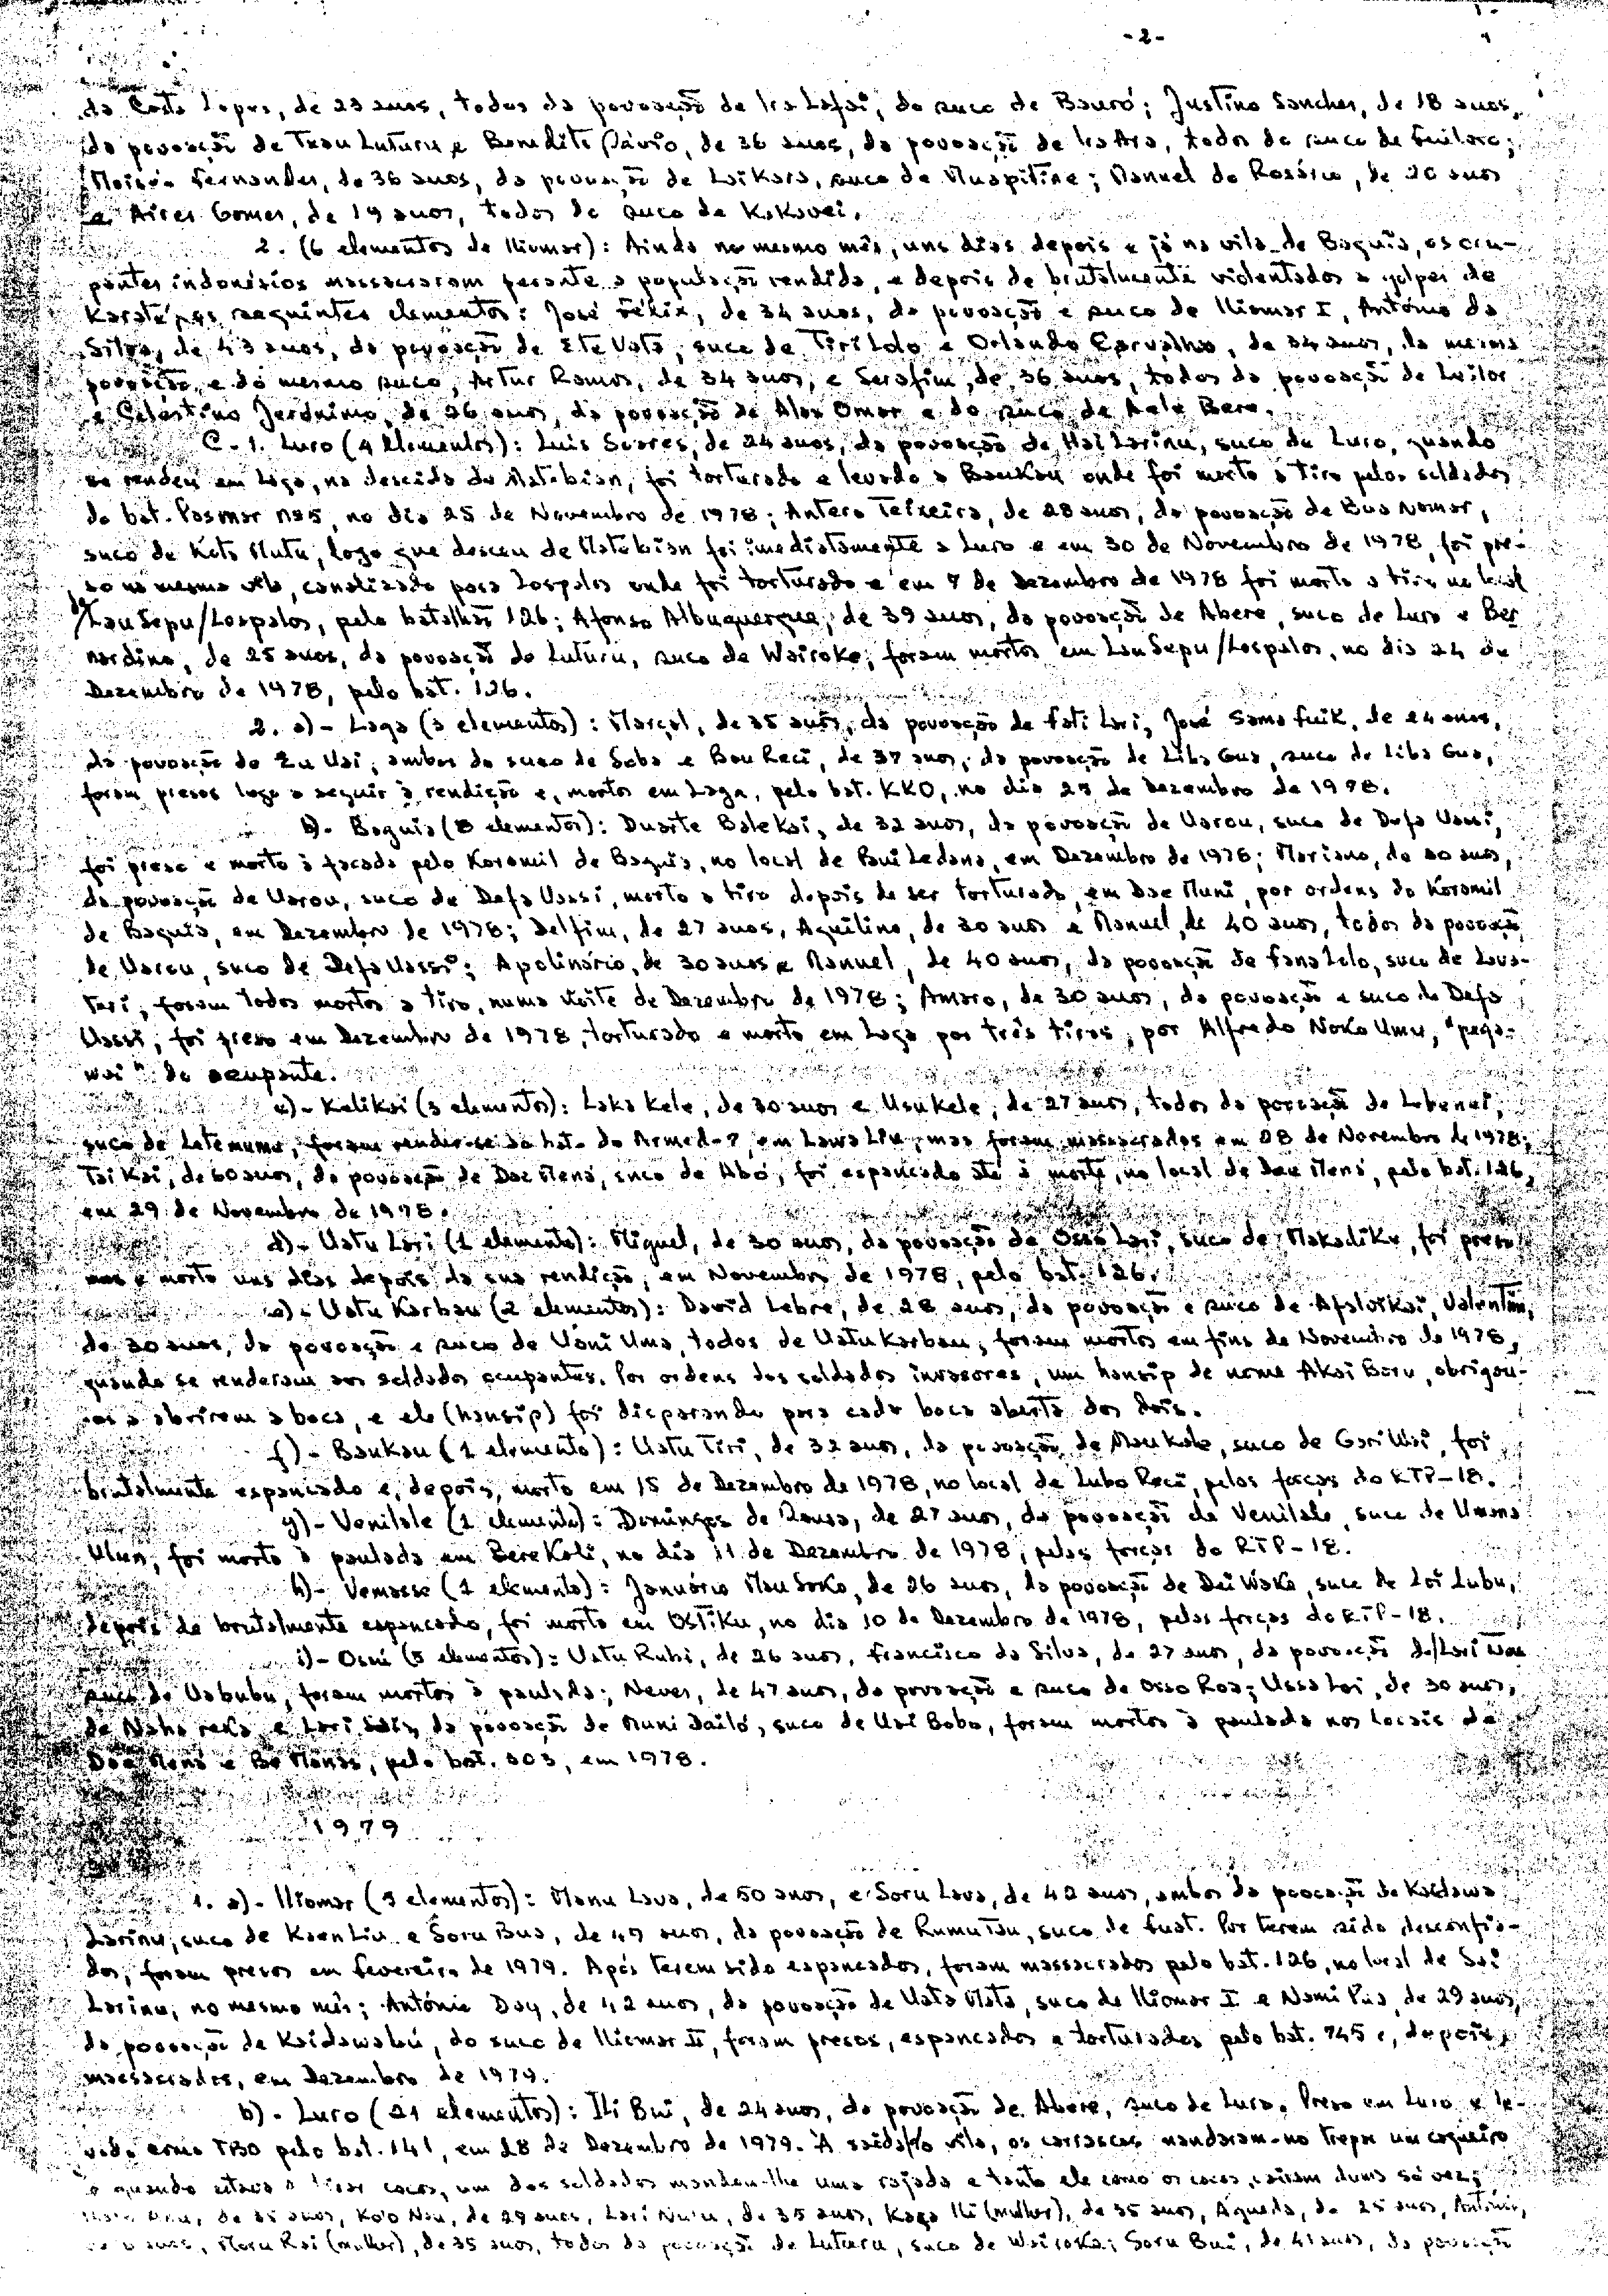 -2-
da Costa Lopes, de 23 anos, todos da povoação de Ira Lafai, do suco de Bauró; Justino Sanches, de 18 anos,
da povoação de Txau Luturu e Benedito Sávio, de 36 anos, da povoação de Ira Ara, todos do suco de Fuiloro;
Moisés Fernandes, de 36 anos, da povoação de Loikara, suco de Muapitine; Manuel do Rosário, de 20 anos
e Aires Gomes, de 19 anos, todos do suco de Kakavei.
2. (6 elementos de Iliomar): Ainda no mesmo mês, uns dias depois e já na vila de Baguia, os ocu-
pantes indonésios massacraram perante a população rendida, e depois de brutalmente violentados a golpes de
Karaté, os seguintes elementos: José Félix, de 34 anos, da povoação e suco de Iliomar I, António da
Silva, de 43 anos, da povoação de Ete Vata, suco de Tirilolo e Orlando Carvalho, de 34 anos, da mesma
povoação e do mesmo suco, Artur Ramos, de 34 anos, e Serafim, de 36 anos, todos da povoação de Lailor
e Celestino Jerónimo, de 26 anos, da povoação de Alax Omor e do suco de Aela Bere.
C. 1. Luro (4 elementos): Luís Soares, de 24 anos, da povoação de Hai Larinu, suco de Luro, quando
se rendeu em Laga, na descida do Matebian, foi torturado e levado a Baukau onde foi morto a tiro pelos soldados
do bat. Pasmar nº5, no dia 25 de Novembro de 1978; Antero Teixeira, de 28 anos, da povoação de Bua Nomor,
suco de Koto Mutu, logo que desceu de Matebian foi imediatamente a Luro e em 30 de Novembro de 1978, foi pre-
so na mesma vila, canalizado para Lospalos onde foi torturado e em 7 de Dezembro de 1978 foi morto a tiro no local
de/Lau Sepu/Lospalos, pelo batalhão 126; Afonso Albuquerque, de 39 anos, da povoação de Abere, suco de Luro e Ber
nardino, de 25 anos, da povoação de Luturu, suco de Wairoke, foram mortos em Lau Sepu/Lospalos, no dia 24 de
Dezembro de 1978, pelo bat. 126.
2. a)- Laga (3 elementos): Marçal, de 35 anos, da povoação de Fati Lari, José Sama Fuik, de 24 anos,
da povoação de Zu Uai, ambos do suco de Soba e Bou Reci, de 37 anos, da povoação de Liba Gua, suco de Liba Gua,
foram presos logo a seguir à rendição e, mortos em Laga, pelo bat. KKO, no dia 25 de Dezembro de 1978.
b)- Baguia (8 elementos): Duarte Balekai, de 32 anos, da povoação de Uarou, suco de Defa Uassi,
foi preso e morto à facada pelo Koramil de Baguia, no local de Bui Ledana, em Dezembro de 1978; Mariano, de 30 anos,
da povoação de Uarou, suco de Defa Uassi, morto a tiro depois de ser torturado, em Dae Muni, por ordens do Koramil
de Baguia, em Dezembro de 1978; Delfim, de 27 anos, Aquilino, de 30 anos e Manuel, de 40 anos, todos da povoação
de Uarou, suco de Defa Uassi; Apolinário, de 30 anos e Manuel, de 40 anos, da povoação de Fanalolo, suco de Lava-
teri, foram todos mortos a tiro, numa noite de Dezembro de 1978; Amaro, de 30 anos, da povoação e suco de Defa
Uassi, foi preso em Dezembro de 1978, torturado e morto em Laga por três tiros, por Alfredo Noko Umu, "pega-
wai" do ocupante.
c)- Kelikai (3 elementos): Laka Kele, de 30 anos e Usu Kele, de 27 anos, todos da povoação de Lebenei,
suco de Letemumo, foram render-se ao bat. do Armed-7, em Lawa Liu, mas foram massacrados em 28 de Novembro de 1978;
Tai Kai, de 60 anos, da povoação de Dae Mena, suco de Abo, foi espancado até à morte, no local de Dae Mena, pelo bat. 126,
em 29 de Novembro de 1978.
d)- Uatu Lari (1 elemento): Miguel, de 30 anos, da povoação de Osso Lari, suco de Makadiku, foi preso
e morto uns dias depois da sua rendição, em Novembro de 1978, pelo bat. 126.
e)- Uatu Karbau (2 elementos): David Lebre, de 28 anos, da povoação e suco de Afaloikai, Valentim,
de 30 anos, da povoação e suco de Uani Uma, todos de Uatu Karbau, foram mortos em fins de Novembro de 1978,
quando se renderam aos soldados ocupantes. Por ordens dos soldados invasores, um hansip de nome Akai Boru, obrigou-
-os a abrirem a boca, e ele (hansip) foi disparando para cada boca aberta dos dois.
f)- Baukau (1 elemento): Uatu Tiri, de 32 anos, da povoação de Maukale, suco de Gari Uai, foi
brutalmente espancado e, depois, morto em 15 de Dezembro de 1978, no local de Lubo Reci, pelas forças do RTP-18.
g)- Venilale (1 elemento): Domingos de Sousa, de 27 anos, da povoação de Venilale, suco de Umana
Ulun, foi morto à paulada em Bere Koli, no dia 11 de Dezembro de 1978, pelas forças do RTP-18.
h)- Vemasse (1 elemento): Januário Mau Soko, de 26 anos, da povoação de Dei Wako, suco de Loi Lubu,
depois de brutalmente espancado, foi morto em Ostiku, no dia 10 de Dezembro de 1978, pelas forças do RTP-18.
i)- Ossú (5 elementos): Uatu Rubi, de 26 anos, Francisco da Silva, de 27 anos, da povoação de/Lari Uae
suco de Uabubu, foram mortos à paulada; Neves, de 47 anos, da povoação e suco de Osso Roa; Uassa Loi, de 30 anos,
de Naha reka e Lari Sais, da povoação de Muni Dailó, suco de Uai Bobo, foram mortos à paulada nos locais de
Dae Mena e Be Manas, pelo bat. 303, em 1978.
1979
1. a)- Iliomar (5 elementos): Manu Lava, de 50 anos, e Soru Lava, de 42 anos, ambos da povoação de Kaidawa
Larinu, suco de Kaen Liu e Soru Bua, de 49 anos, da povoação de Rumu Tau, suco de Fuat. Por terem sido desconfia-
dos, foram presos em Fevereiro de 1979. Após terem sido espancados, foram massacrados pelo bat. 126, no local de Sai
Larinu, no mesmo mês; António Day, de 42 anos, da povoação de Uata Mata, suco de Iliomar I e Nami Pua, de 29 anos,
da povoação de Kaidawalu, do suco de Iliomar II, foram presos, espancados e torturados pelo bat. 745 e, depois,
massacrados, em Dezembro de 1979.
b)- Luro (21 elementos): Ili Bui, de 24 anos, da povoação de Abere, suco de Luro. Preso em Luro e le-
vado como TBO pelo bat. 141, em 28 de Dezembro de 1979. À saída/da vila, os carrascos mandaram-no trepar um coqueiro
e quando estava a tirar cocos, um dos soldados mandou-lhe uma rajada e tanto ele como os cocos, caíram duma só vez;
de 35 anos, Koo Nau, de 29 anos, Lari Nuru, de 35 anos, Kaga Ili (mulher), de 35 anos, Águeda, de 25 anos, António,
anos, Moru Rai (mulher), de 35 anos, todos da povoação de Luturu, suco de Wairoke; Soru Bui, de 41 anos, da povoação